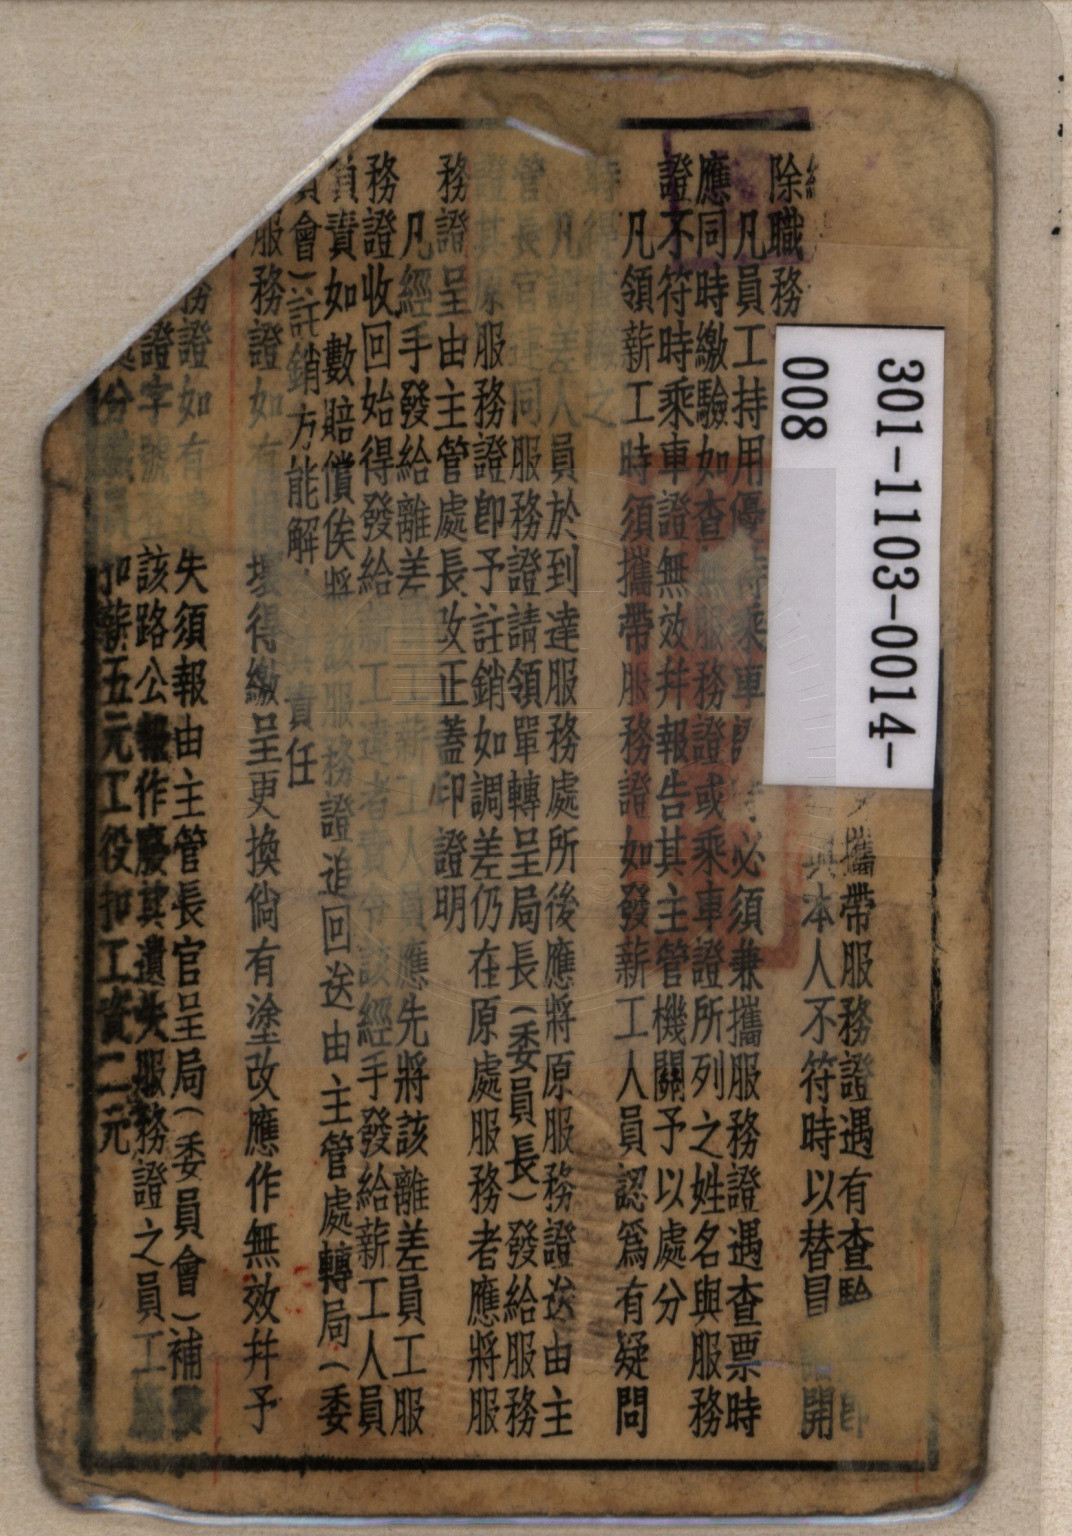 301-1103-0014-
008
攜帶服務證遇有查
與本人不符時以替冒 開
除職務
凡員工持用優待乘車 必須兼攜服務證遇查票時
應同時繳驗如查無服務證或乘車證所列之姓名與服務
證不符時乘車證無效并報告其主管機關予以處分
凡領薪工時須攜帶服務證如發薪工人員認為有疑問
時得查驗之
凡調差人員於到達服務處所後應將原服務證送由主
管長官連同服務證請領單轉呈局長(委員長)發給服務
證其原服務證即予註銷如調差仍在原處服務者應將服
務證呈由主管處長改正蓋印證明
凡經手發給離差員工薪工人員應先將該離差員工服
務證收回始得發給薪工違者責令該經手發給薪工人員
負責如數賠償俟將該服務證追回送由主管處轉局(委
員會)註銷方能解 其責任
服務證如有損壞得繳呈更換倘有塗改應作無效并予
務證如有遺失須報由主管長官呈局(委員會)補發
證字號 該路公報作廢其遺失服務證之員工
處分職員扣薪五元工役扣工資二元